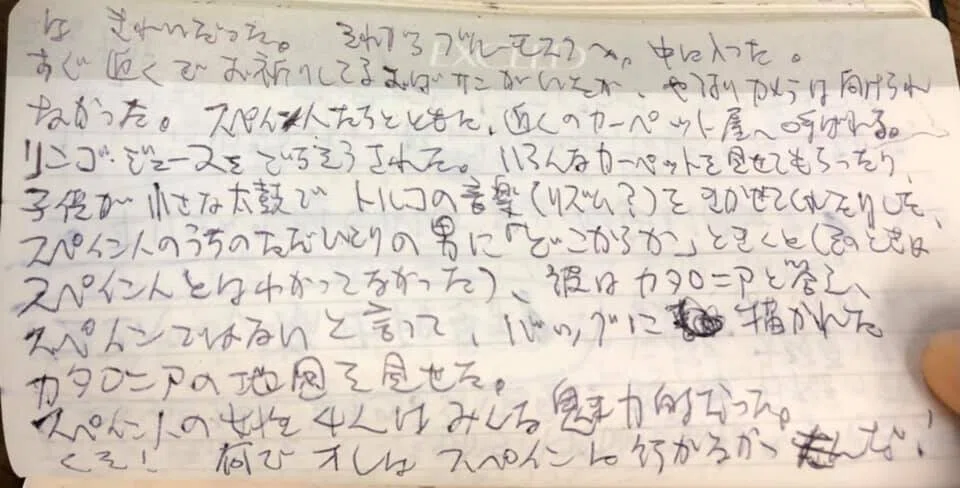 は きれいだった。 それからブルーモスクへ、中に入った。
すぐ近くでお祈りしてるおばサンがいたが、やはりカメラは向けられ
なかった。 スペイン人たちとともに、近くのカーペット屋へ呼ばれる。
リンゴ・ジュースをごちそうされた。いろんなカーペットを見せてもらったり、
子供が小さな太鼓で トルコの音楽(リズム?)をきかせてくれたりした、
スペイン人のうちのただひとりの男に「どこからか」ときくと(そのときは
スペイン人とはわかってなかった)、彼はカタロニアと答え、
スペインではないと言って、バッグに 描かれた
カタロニアの地図を見せた。
スペイン人の女性4人はみんな魅力的だった。
くそ! 何でオレはスペインに行かなかったんだ!
EXCEED